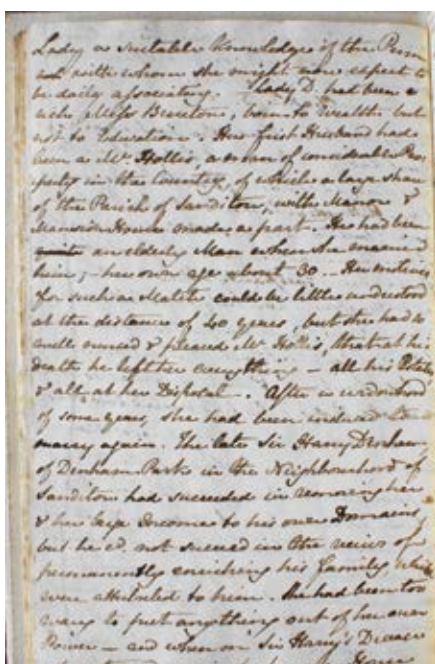 Lady a suitable Knowledge of the Person
with whom she might now expect to
be daily associating. Lady D. had been a
rich Miss Brereton, born to Wealth but
not to Education. Her first Husband had
been a Mr Hollis, a man of considerable Pro-
perty in the Country, of which a large share
of the Parish of Sanditon, with Manor &
Mansion House made a part. He had been
an elderly Man when she married
him; - her own age about 30. - Her motives
for such a Match could be little understood
at the distance of 40 years, but she had so
well nursed & pleased Mr Hollis, that at his
death he left her everything - all his Estates
& all at her Disposal. After a widowhood
of some years, she had been induced to
marry again. The late Sir Harry Denham
of Denham Park in the Neighbourhood of
Sanditon had succeeded in removing her
& her large Income to his own Domains,
but he cd not succeed in the veiws of
permanently enriching his family, which
were attributed to him. She had been too
wary to put anything out of her own
Power - and when on Sir Harry's Decease